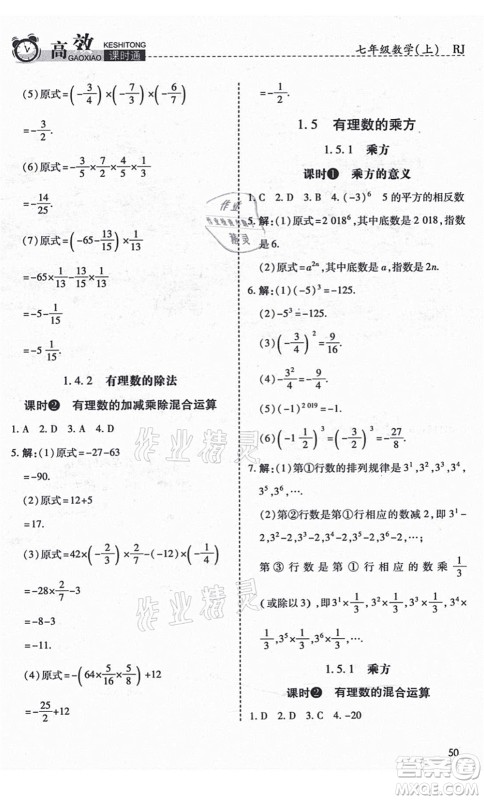 高效
KESHITONG
GAOXIAO 课时通
七年级数学(上) RJ
(5)原式=(-3/4)×(-3/7)×(-7/3)
=-3/2.
(6)原式=-3/10×5/6×14/25
=-14/25.
(7)原式=(-65-13/15)×1/13
=-65×1/13-13/15×1/13
=-5-1/15
=-5 1/15.
1.4.2 有理数的除法
课时❷ 有理数的加减乘除混合运算
1. A 2. D 3. D 4. A
5. 解:(1)原式=-27-63
=-90.
(2)原式=12+5
=17.
(3)原式=42×(-2/3)×1/7-(-12)×(-1/4)
=-28×2/7-3
=-8-3
=-11.
(4)原式=-(64×5/16×5/8)+12
=-25/2+12
=-1/2.
1.5 有理数的乘方
1.5.1 乘方
课时❶ 乘方的意义
1. C 2. D 3. B 4. (-3)⁶ 5的平方的相反数
5. 解:(1)原式=2 018⁶,其中底数是2 018,指数是6.
(2)原式=a²ⁿ,其中底数是a,指数是2n.
6. 解:(1)(-5)³=-125.
(2)-5³=-125.
(3)(-3/4)²=9/16.
(4)-3²/4=-9/4.
(5)(-1)²⁰¹⁹=-1.
(6)(-1 1/2)³=(-3/2)³=-27/8.
7. 解:(1)第①行数的排列规律是3¹,3²,3³,3⁴,3⁵,3⁶,⋯.
(2)第②行数是第①行相应的数减2,即3¹-2,3²-2,3³-2,3⁴-2,3⁵-2,⋯.
第③行数是第①行相应的数乘1/3
(或除以3),即3¹×1/3,3²×1/3,3³×1/3,3⁴×1/3,3⁵×1/3,⋯.
1.5.1 乘方
课时❷ 有理数的混合运算
1. D 2. D 3. C 4. -20
50
作业精灵